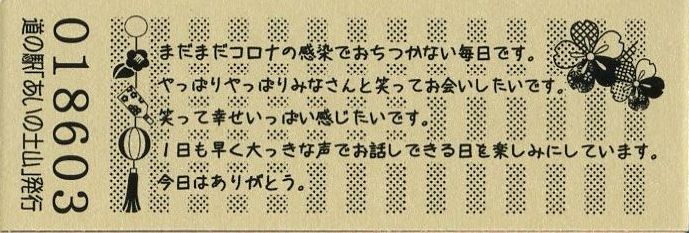 018603
道の駅「あいの土山」発行
まだまだコロナの感染でおちつかない毎日です。
やっぱりやっぱりみなさんと笑ってお会いしたいです。
笑って幸せいっぱい感じたいです。
1日も早く大っきな声でお話しできる日を楽しみにしています。
今日はありがとう。